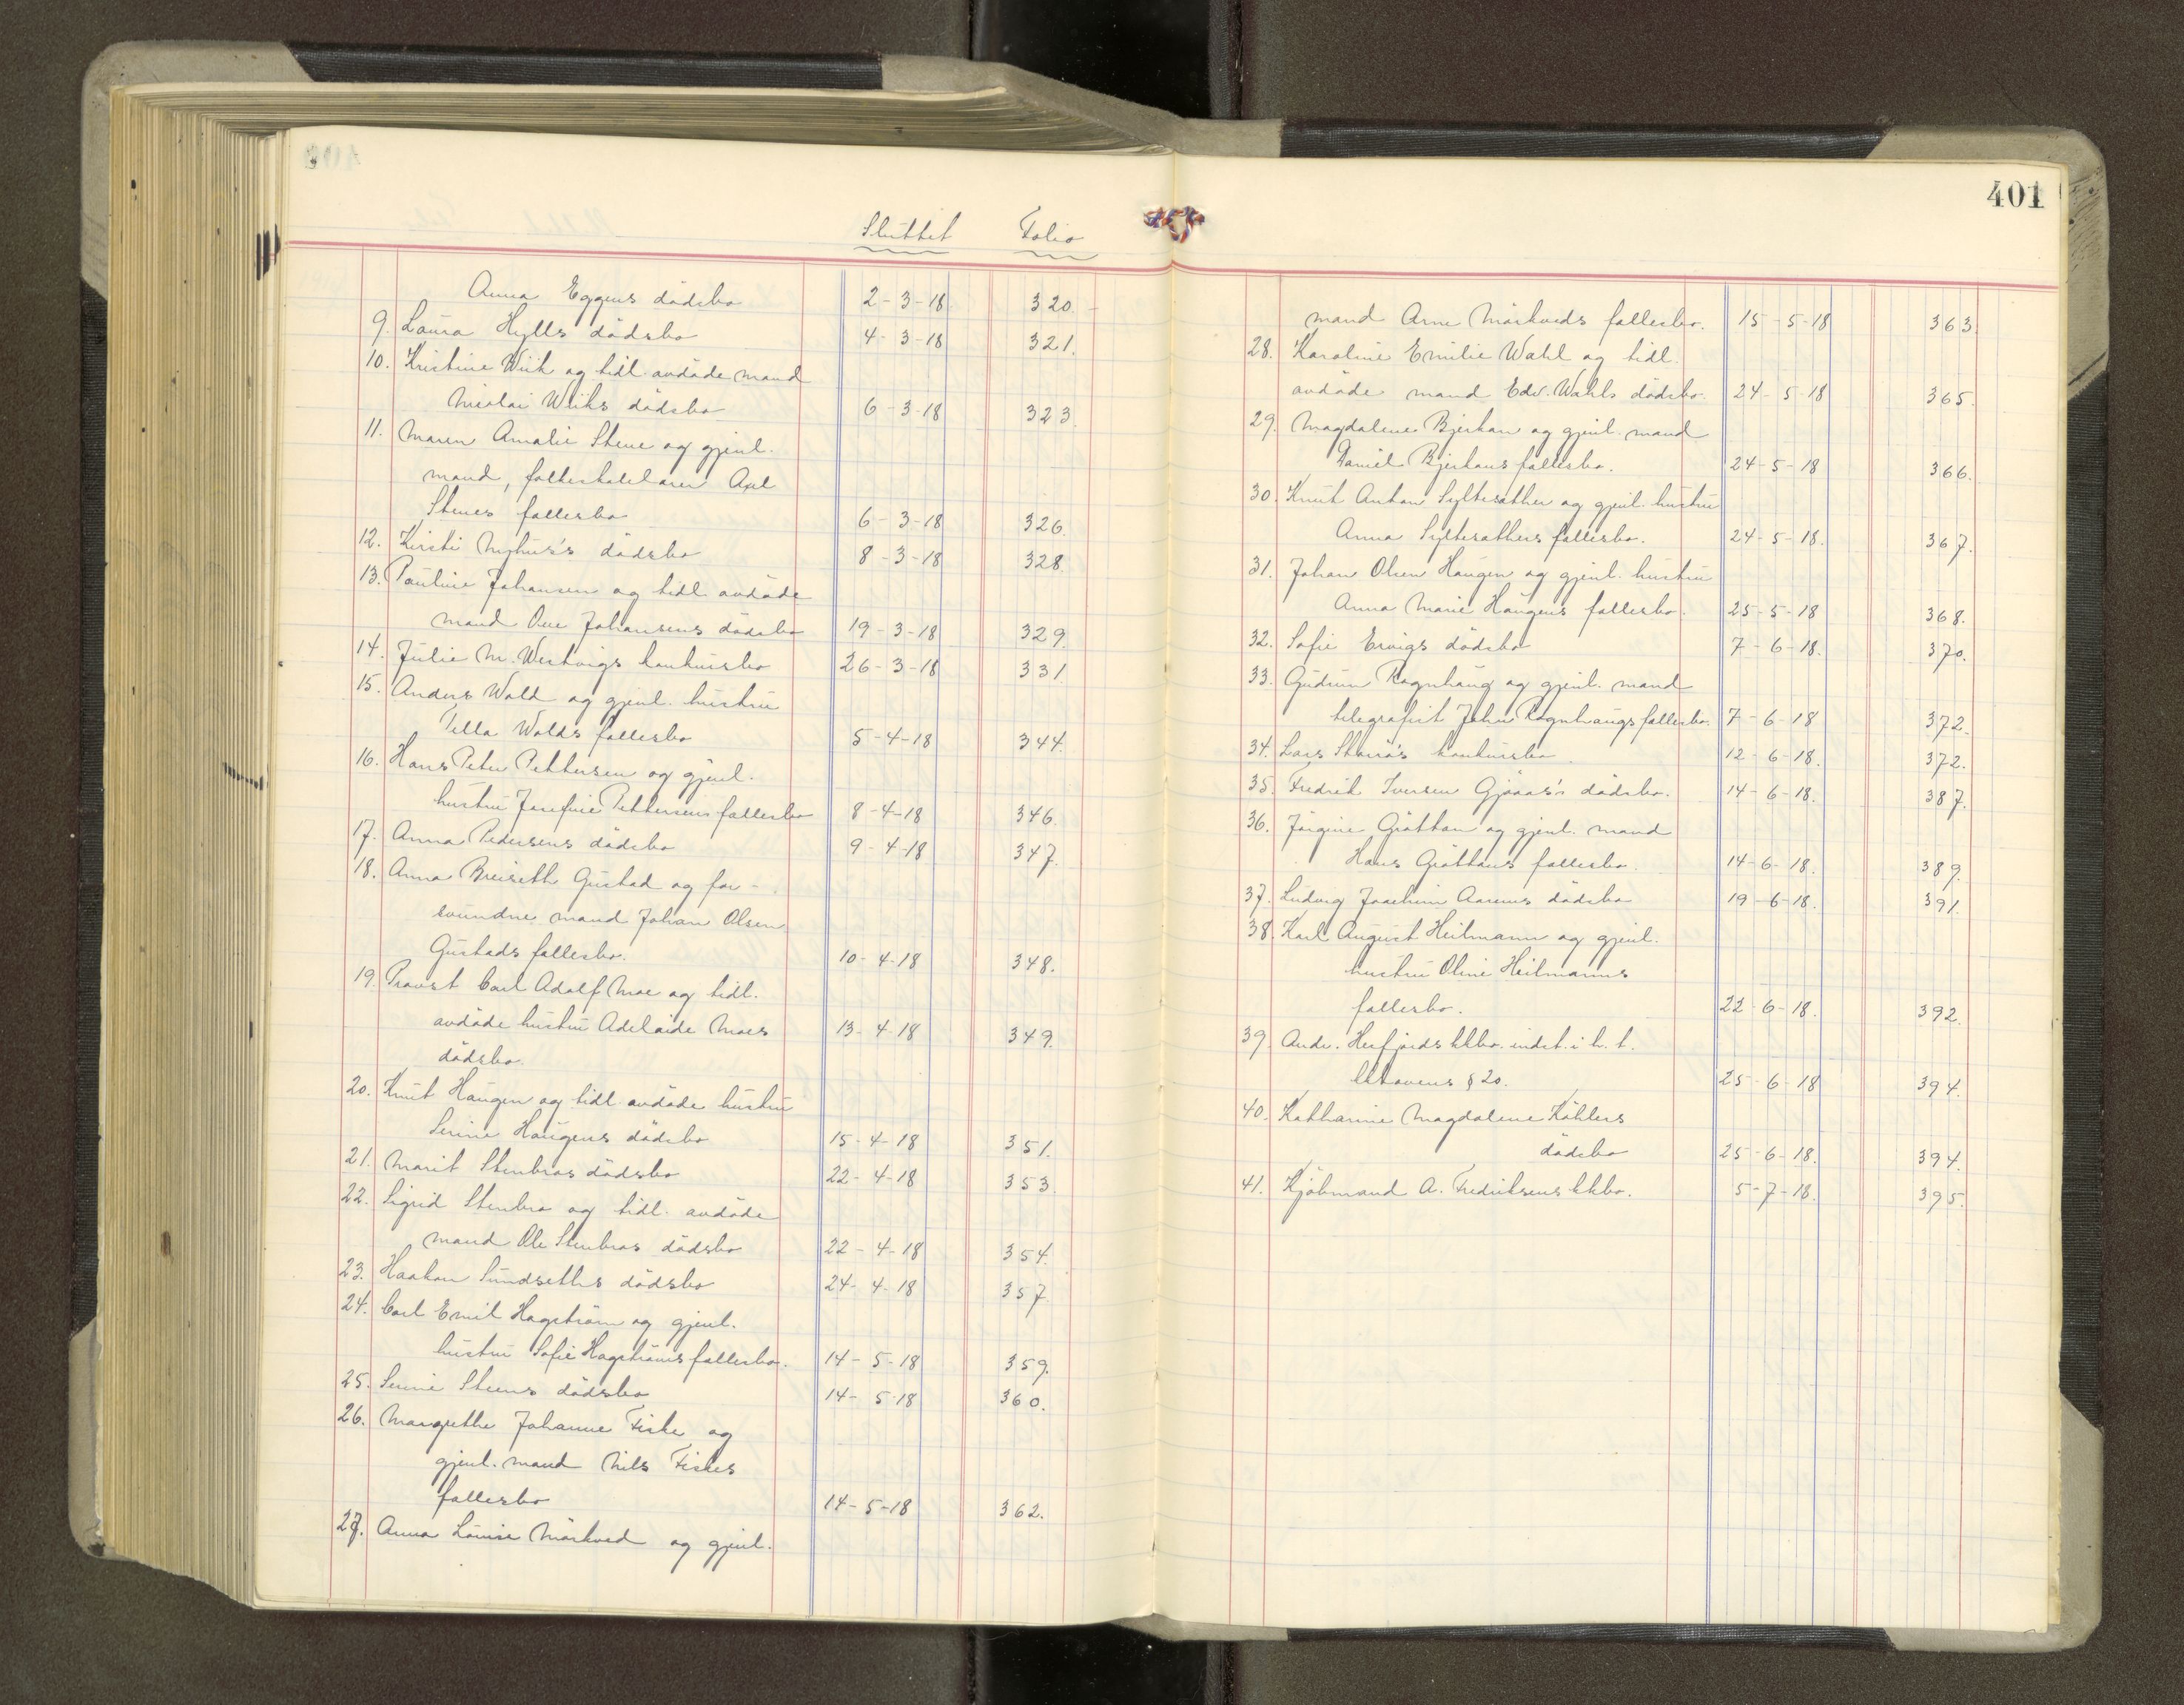 Sluttet Folio
Anna Eggens dödsbo 2-3-18 320.
9. Laura Hylls dödsbo 4-3-18 321.
10. Kristine Wiik og tidl. avdöde mand
Nicolai Wiiks dödsbo 6-3-18 323.
11. Maren Amalie Stene og gjenl.
mand, Axel
Stenes fællesbo 6-3-18 326.
12. Kirsti Nyhus's dödsbo 8-3-18 328.
13. Pauline Johansen og tidl. avdöde
mand Ove Johansens dödsbo 19-3-18 329.
14. Julie M. Westvigs konkursbo 26-3-18 331.
15. Anders Wold og gjenl. hustru
Tella Wolds fællesbo 5-4-18 344.
16. Hans Peter Pettersen og gjenl.
hustru Josefine Pettersens fællesbo 8-4-18 346.
17. Anna Pedersens dödsbo 9-4-18 347.
18. Anna Breiseth Gustad og for-
svundne mand Johan Olsen
Gustads fællesbo. 10-4-18 348.
19. Provst Carl Adolf Moe og tidl.
avdöde hustru Adelaide Moes 13-4-18 349.
dödsbo.
20. Knut Haugen og tidl. avdöde hustru
Serine Haugens dödsbo 15-4-18 351.
21. Marit Stenbros dödsbo 22-4-18 353.
22. Sigrid Stenbro og tidl. avdöde
mand Ole Stenbros dödsbo 22-4-18 354.
23. Haakon Sundseths dödsbo 24-4-18 357.
24. Carl Emil Hagström og gjenl.
hustru Sofie Hagströms fællesbo. 14-5-18 359.
25. Serine Steens dödsbo 14-5-18 360.
26. Margrethe Johanne Fiske og
gjenl. mand Nils Fiskes
fællesbo 14-5-18 362.
27. Anna Louise Mörkved og gjenl.
401
mand Arne Mörkveds fællesbo. 15-5-18 363.
28. Karoline Emilie Wahl og tidl.
avdöde mand Edv. Wahls dödsbo. 24-5-18 365.
29. Magdalene Bjerkan og gjenl. mand
Daniel Bjerkans fællesbo. 24-5-18 366.
30. Knut Anton Syltesæther og gjenl. hustru
Anna Syltesæthers fællesbo. 24-5-18. 367.
31. Johan Olsen Haugen og gjenl. hustru
Anna Marie Haugens fællesbo. 25-5-18 368.
32. Sofie Ervigs dödsbo 7-6-18. 370.
33. Gudrun Rognhaug og gjenl. mand
telegrafist John Rognhaugs fællesbo. 7-6-18 372.
34. Lars konkursbo. 12-6-18. 372.
35. Fredrik Iversen Gjöaas's dödsbo. 14-6-18. 387.
36. Jörgine Gröttan og gjenl. mand
Hans Gröttans fællesbo. 14-6-18. 389.
37. Ludvig Joachim Aarems dödsbo 19-6-18. 391.
38. Karl August Heilmann og gjenl.
hustru Oline Heilmanns
fællesbo. 22-6-18. 392.
39. Andr. Herfjords kkbo. indst. i h. t.
kklovens § 20. 25-6-18 394.
40. Katharine Magdalene Köhlers
dödsbo 25-6-18. 394.
41. Kjöbmand A. Fredriksens kkbo. 5-7-18. 395.